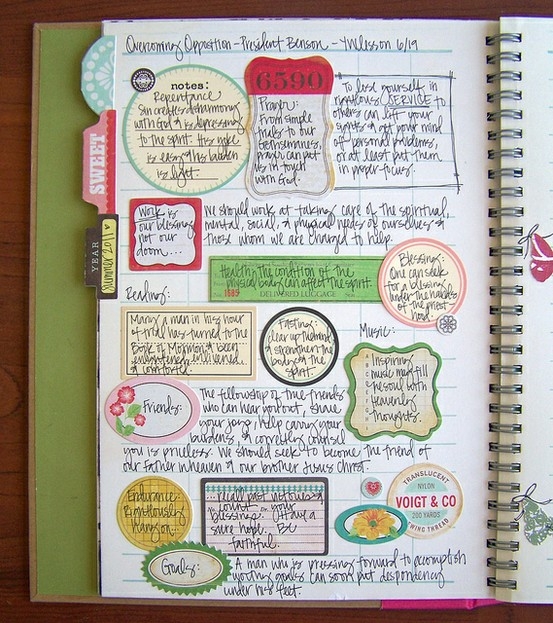 Overcoming Opposition - President Benson - YM lesson 6/19
notes:
Repentance
Sin creates disharmony
with God & is depressing
to the spirit. His yoke
is easy & his burden
is light.
6590
Prayer:
From simple
trials to our
Gethsemanes,
prayer can put
us in touch
with God.
To lose yourself in
righteous SERVICE to
others can lift your
sights & get your mind
off personal problems,
or at least put them
in proper focus.
SWEET
YEAR
Summer 2011
Work is
our blessing
not our
doom...
We should work at taking care of the spiritual,
mental, social, & physical needs of ourselves &
those whom we are charged to help.
Health: the condition of the
physical body can affect the spirit.
1585
DELIVERED LUGGAGE
Blessing:
One can seek
for a blessing
under the hands
of the priest
hood.
Reading:
Many a man in his hour
of trial has turned to the
Book of Mormon & been
enlightened, enlivened,
& comforted.
Fasting:
clear up the mind
& strengthen the
body & the
spirit.
Music:
Inspiring
music may fill
the soul with
heavenly
thoughts.
Friends:
The fellowship of true friends
who can hear you out, share
your joys, help carry your
burdens, & correctly counsel
you is priceless. We should seek to become the friend of
our Father in heaven & our brother Jesus Christ.
Endurance:
Righteously
hang on...
...recall past victories &
count your
blessings. Have a
sure hope. Be
faithful.
TRANSLUCENT
NYLON
VOIGT & CO
200 YARDS
THREAD
Goals:
A man who is pressing forward to accomplish
worthy goals can soon put despondency
under his feet.